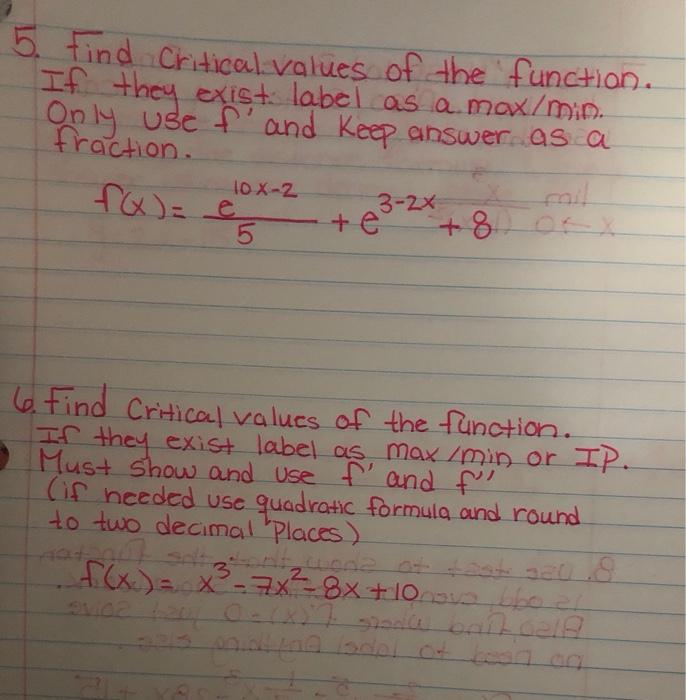 5. Find Critical values of the function.
If they exist label as a max/min.
Only use f' and Keep answer as a
fraction.
f(x) = e^(10x-2)/5 + e^(3-2x) + 8
6. Find Critical values of the function.
If they exist label as max/min or IP.
Must show and use f' and f''
(if needed use quadratic formula and round
to two decimal places)
f(x) = x³ - 7x² - 8x + 10